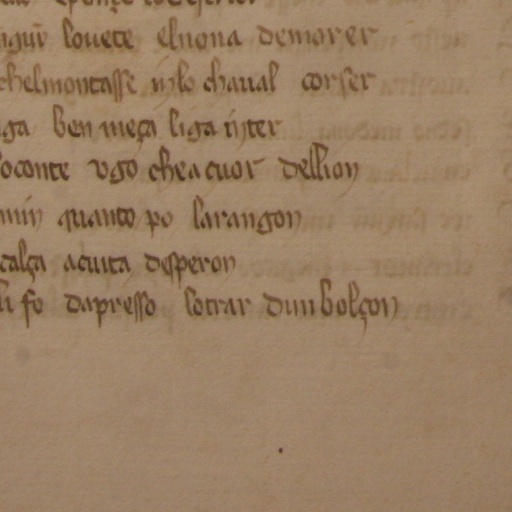 louete eluona demorer
chelmontasse inlo chaual corser
ga ben meça liga inter
oconte vgo chea cuor dellion
min quanto po larangon
calça acuita desperon
li fo dapresso lotrar dun bolçon